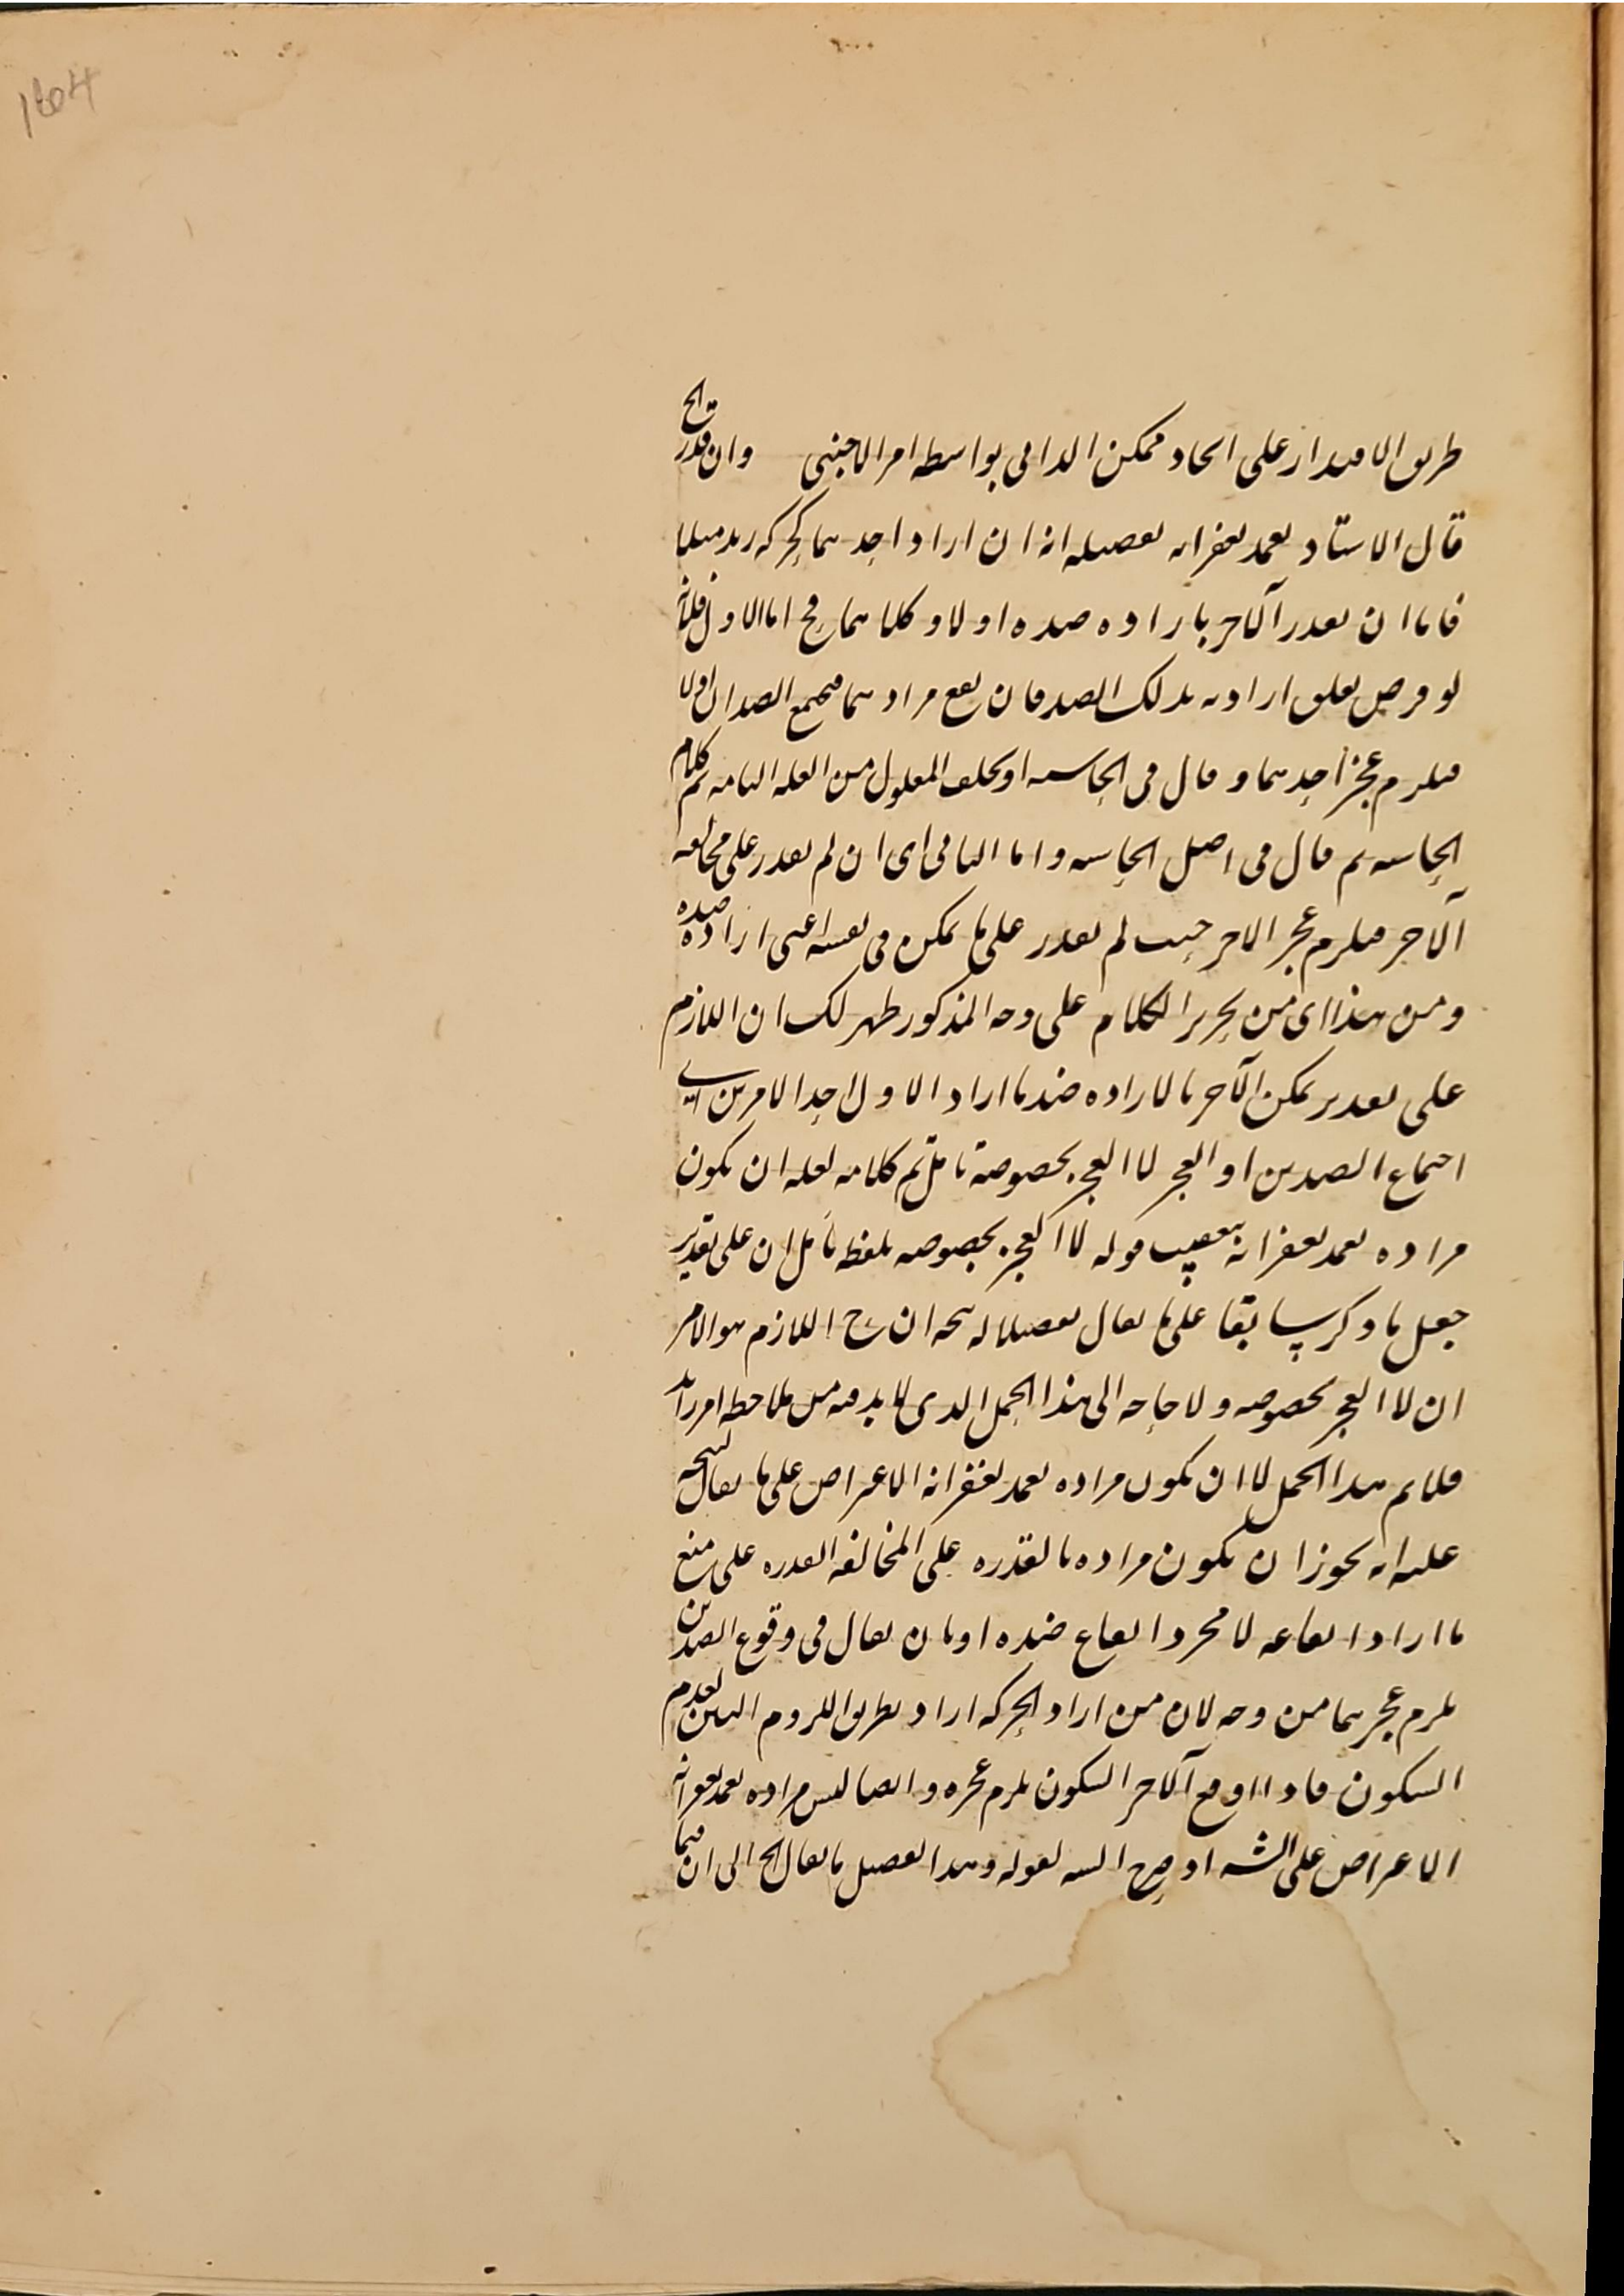 طريق الاقتدار على اتحاد ممكن الذاتي بواسطة امر الاجنبي وان قدر الخ
قال الاستاد تغمد بغفرانه تفصيله انه ان اراد احدهما كحركة زيد مثلا
فاما ان يقدر الآخر بارادة ضده اولا وكلاهما مح اما الاول فلانه
لو فرض تعلق ارادته بذلك الضد فان يقع مرادهما فيجتمع الضدان اولا
فيلزم عجز احدهما وقال في الحاشية او تخلف المعلول من العلة التامة تم كلام
الحاشية ثم قال في اصل الحاشية واما الثاني اى ان لم يقدر على مخالفة
الآخر فيلزم عجز الاخر حيث لم يقدر على ما يمكن في نفسه اعنى ارادة ضده
ومن هذا اى من تحرير الكلام على وجه المذكور ظهر لك ان اللازم
على تقدير تمكن الآخر بالارادة ضد ما اراد الاول احد الامرين اى
اجتماع الضدين او العجز لا العجز بخصوصة تامل تم كلامه لعله ان يكون
مراده تغمد بغفرانه بتعقيب قوله لا العجز بخصوصه بلفظ تامل ان على تقدير
جعل ما ذكر سابقا على ما يقال تفصيلا له يتجه ان ح اللازم هو الامر
ان لا العجز بخصوصه ولا حاجة الى هذا الحمل الذى لابد فيه من ملاحظة امر زائد
فلا يتم هذا الحمل لا ان يكون مراده تغمد بغفرانه الاعتراض على ما يقال ليتجه
عليه انه يجوز ان يكون مراده بالقدرة على المخالفة القدرة على منع
ما اراد ايقاعه لا مجرد ايقاع ضده او بان يقال في وقوع الضدين
يلزم عجزهما من وجه لان من اراد الحركة اراد بطريق اللزوم البين لعدم
السكون فاذا اوقع الآخر السكون يلزم عجزه وايضا ليس مراده تغمد بغفرانه
الاعتراض على الشه اذ صرح السيد بقوله وهذا تفصيل ما يقال الخ الى ان فيما